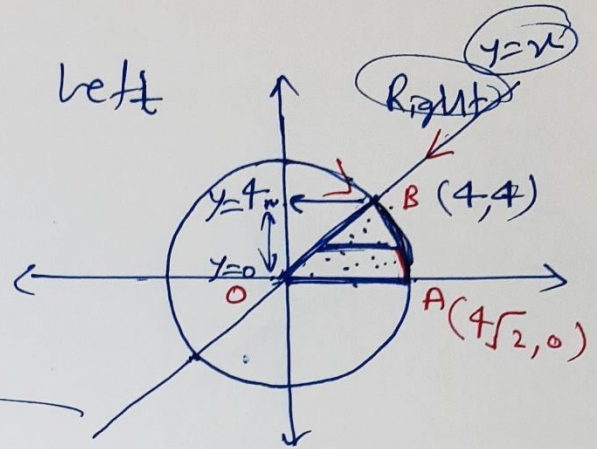 y=x
Left
Right
y=4
B (4,4)
y=0
O
A(4√2,0)